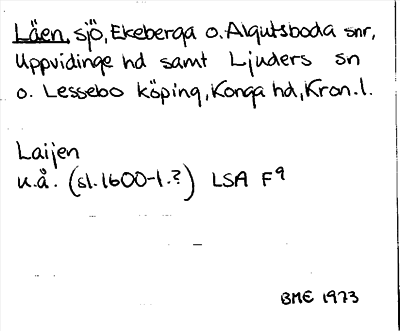 Läen, sjö, Ekeberga o. Algutsboda snr,
Uppvidinge hd samt Ljuders sn
o. Lessebo köping, Konga hd, Kron.l.
Laijen
u.å. (sl. 1600-t.?) LSA F9
BME 1973